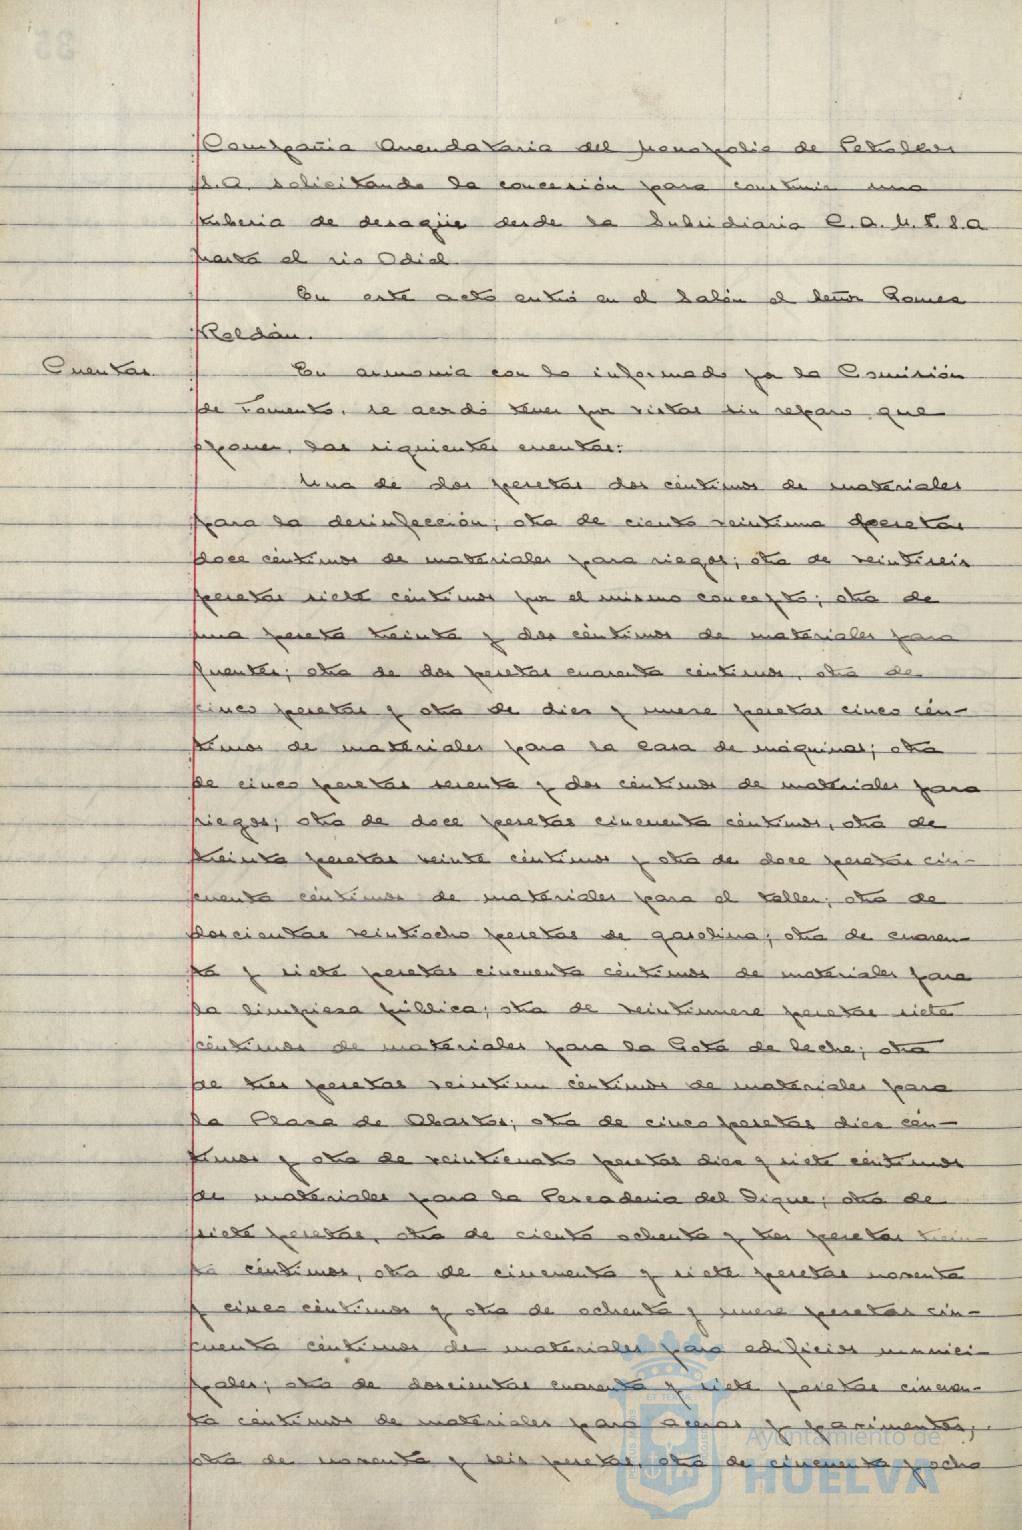 Compañia Arrendataria del Monopolio de Petroleos
S.A. solicitando la concesión para construir una
tuberia de desagüe desde la Subsidiaria C.A.M.P.S.A
hasta el rio Odiel.
En este acto entró en el Salón el Señor Gomez
Roldán.
Cuentas.
En armonia con lo informado por la Comisión
de Fomento, se acordó tener por vistas sin reparo que
oponer, las siguientes cuentas:
Una de dos pesetas dos céntimos de materiales
para la desinfección; otra de ciento veintiuna pesetas
doce céntimos de materiales para riegos; otra de veintiseis
pesetas siete céntimos por el mismo concepto; otra de
una peseta treinta y dos céntimos de materiales para
fuentes; otra de dos pesetas cuarenta céntimos, otra de
cinco pesetas y otra de diez y nueve pesetas cinco cén-
timos de materiales para la casa de máquinas; otra
de cinco pesetas sesenta y dos céntimos de materiales para
riegos; otra de doce pesetas cincuenta céntimos, otra de
treinta pesetas veinte céntimos y otra de doce pesetas cin-
cuenta céntimos de materiales para el taller; otra de
doscientas veintiocho pesetas de gasolina; otra de cuaren-
ta y siete pesetas cincuenta céntimos de materiales para
la limpieza pública; otra de veintinueve pesetas siete
céntimos de materiales para la Gota de leche; otra
de tres pesetas veintiun céntimos de materiales para
la Plaza de Abastos; otra de cinco pesetas diez cén-
timos y otra de veinticuatro pesetas diez y siete céntimos
de materiales para la Pescaderia del Dique; otra de
siete pesetas, otra de ciento ochenta y tres pesetas trein-
ta céntimos, otra de cincuenta y siete pesetas noventa
y cinco céntimos y otra de ochenta y nueve pesetas cin-
cuenta céntimos de materiales para edificios munici-
pales; otra de doscientas cuarenta y siete pesetas cincuen-
ta céntimos de materiales para aceras y pavimentos;
otra de noventa y seis pesetas, otra de cincuenta y ocho
Ayuntamiento de
HUELVA